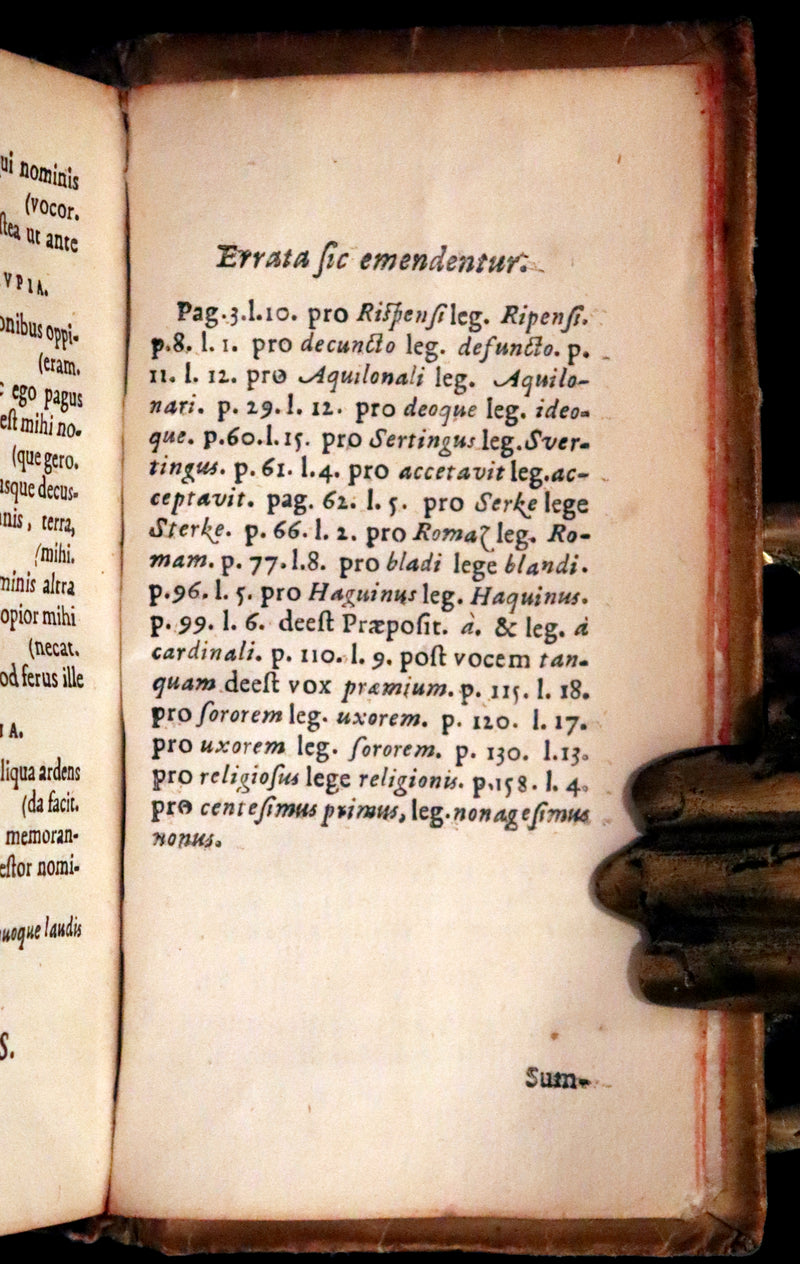 ui nominis
(vocor.
ſtea ut ante
VPIA.
onibus oppi-
(eram.
ego pagus
eſt mihi no-
(que gero.
usque decus-
nis, terra,
(mihi.
minis altra
opior mihi
(necat.
od ferus ille
IA.
liqua ardens
(da facit.
memoran-
eſtor nomi-
uoque laudis
S.
Errata ſic emendentur.
Pag.3.l.10. pro Riſpenſi leg. Ripenſi.
p.8. l. 1. pro decuncto leg. defuncto. p.
11. l. 12. pro Aquilonali leg. Aquilo-
nari. p. 29. l. 12. pro deoque leg. ideo-
que. p.60.l.15. pro Sertingus leg. Sver-
tingus. p. 61. l.4. pro accetavit leg. ac-
ceptavit. pag. 62. l. 5. pro Serke lege
Sterke. p. 66. l. 2. pro Romaz leg. Ro-
mam. p. 77.l.8. pro bladi lege blandi.
p.96. l. 5. pro Haguinus leg. Haquinus.
p. 99. l. 6. deeſt Præpoſit. à. & leg. à
cardinali. p. 110. l. 9. poſt vocem tan-
quam deeſt vox præmium. p. 115. l. 18.
pro ſororem leg. uxorem. p. 120. l. 17.
pro uxorem leg. ſororem. p. 130. l.13.
pro religioſus lege religionis. p.158. l. 4.
pro centeſimus primus, leg. nonageſimus
nonus.
Sum-